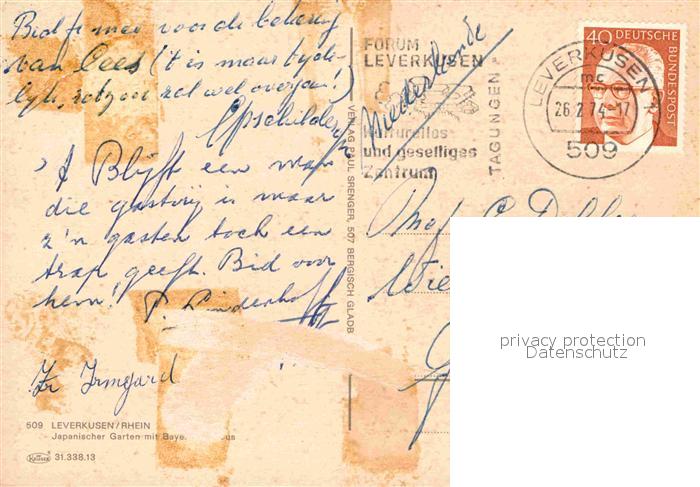 Bid je mee voor de bekering
van Cees ('t is maar tyde-
lyk, zal wel overgaan!)
Epschilders
't Blyft een man
die gastvrij is maar
z'n gasten toch een
trap geeft. Bid voor
hem!
P. Linderhoff
Zr Irmgard
509 LEVERKUSEN/RHEIN
Japanischer Garten mit Baye us
Krüger 31.338.13
VERLAG PAUL SRENGER, 507 BERGISCH GLADB
FORUM
LEVERKUSEN
Kulturelles
und geselliges
Zentrum
TAGUNGEN
Niederlande
LEVERKUSEN 1
mc
26.2.74-17
509
40 DEUTSCHE
BUNDESPOST
Prof. C.
privacy protection
Datenschutz